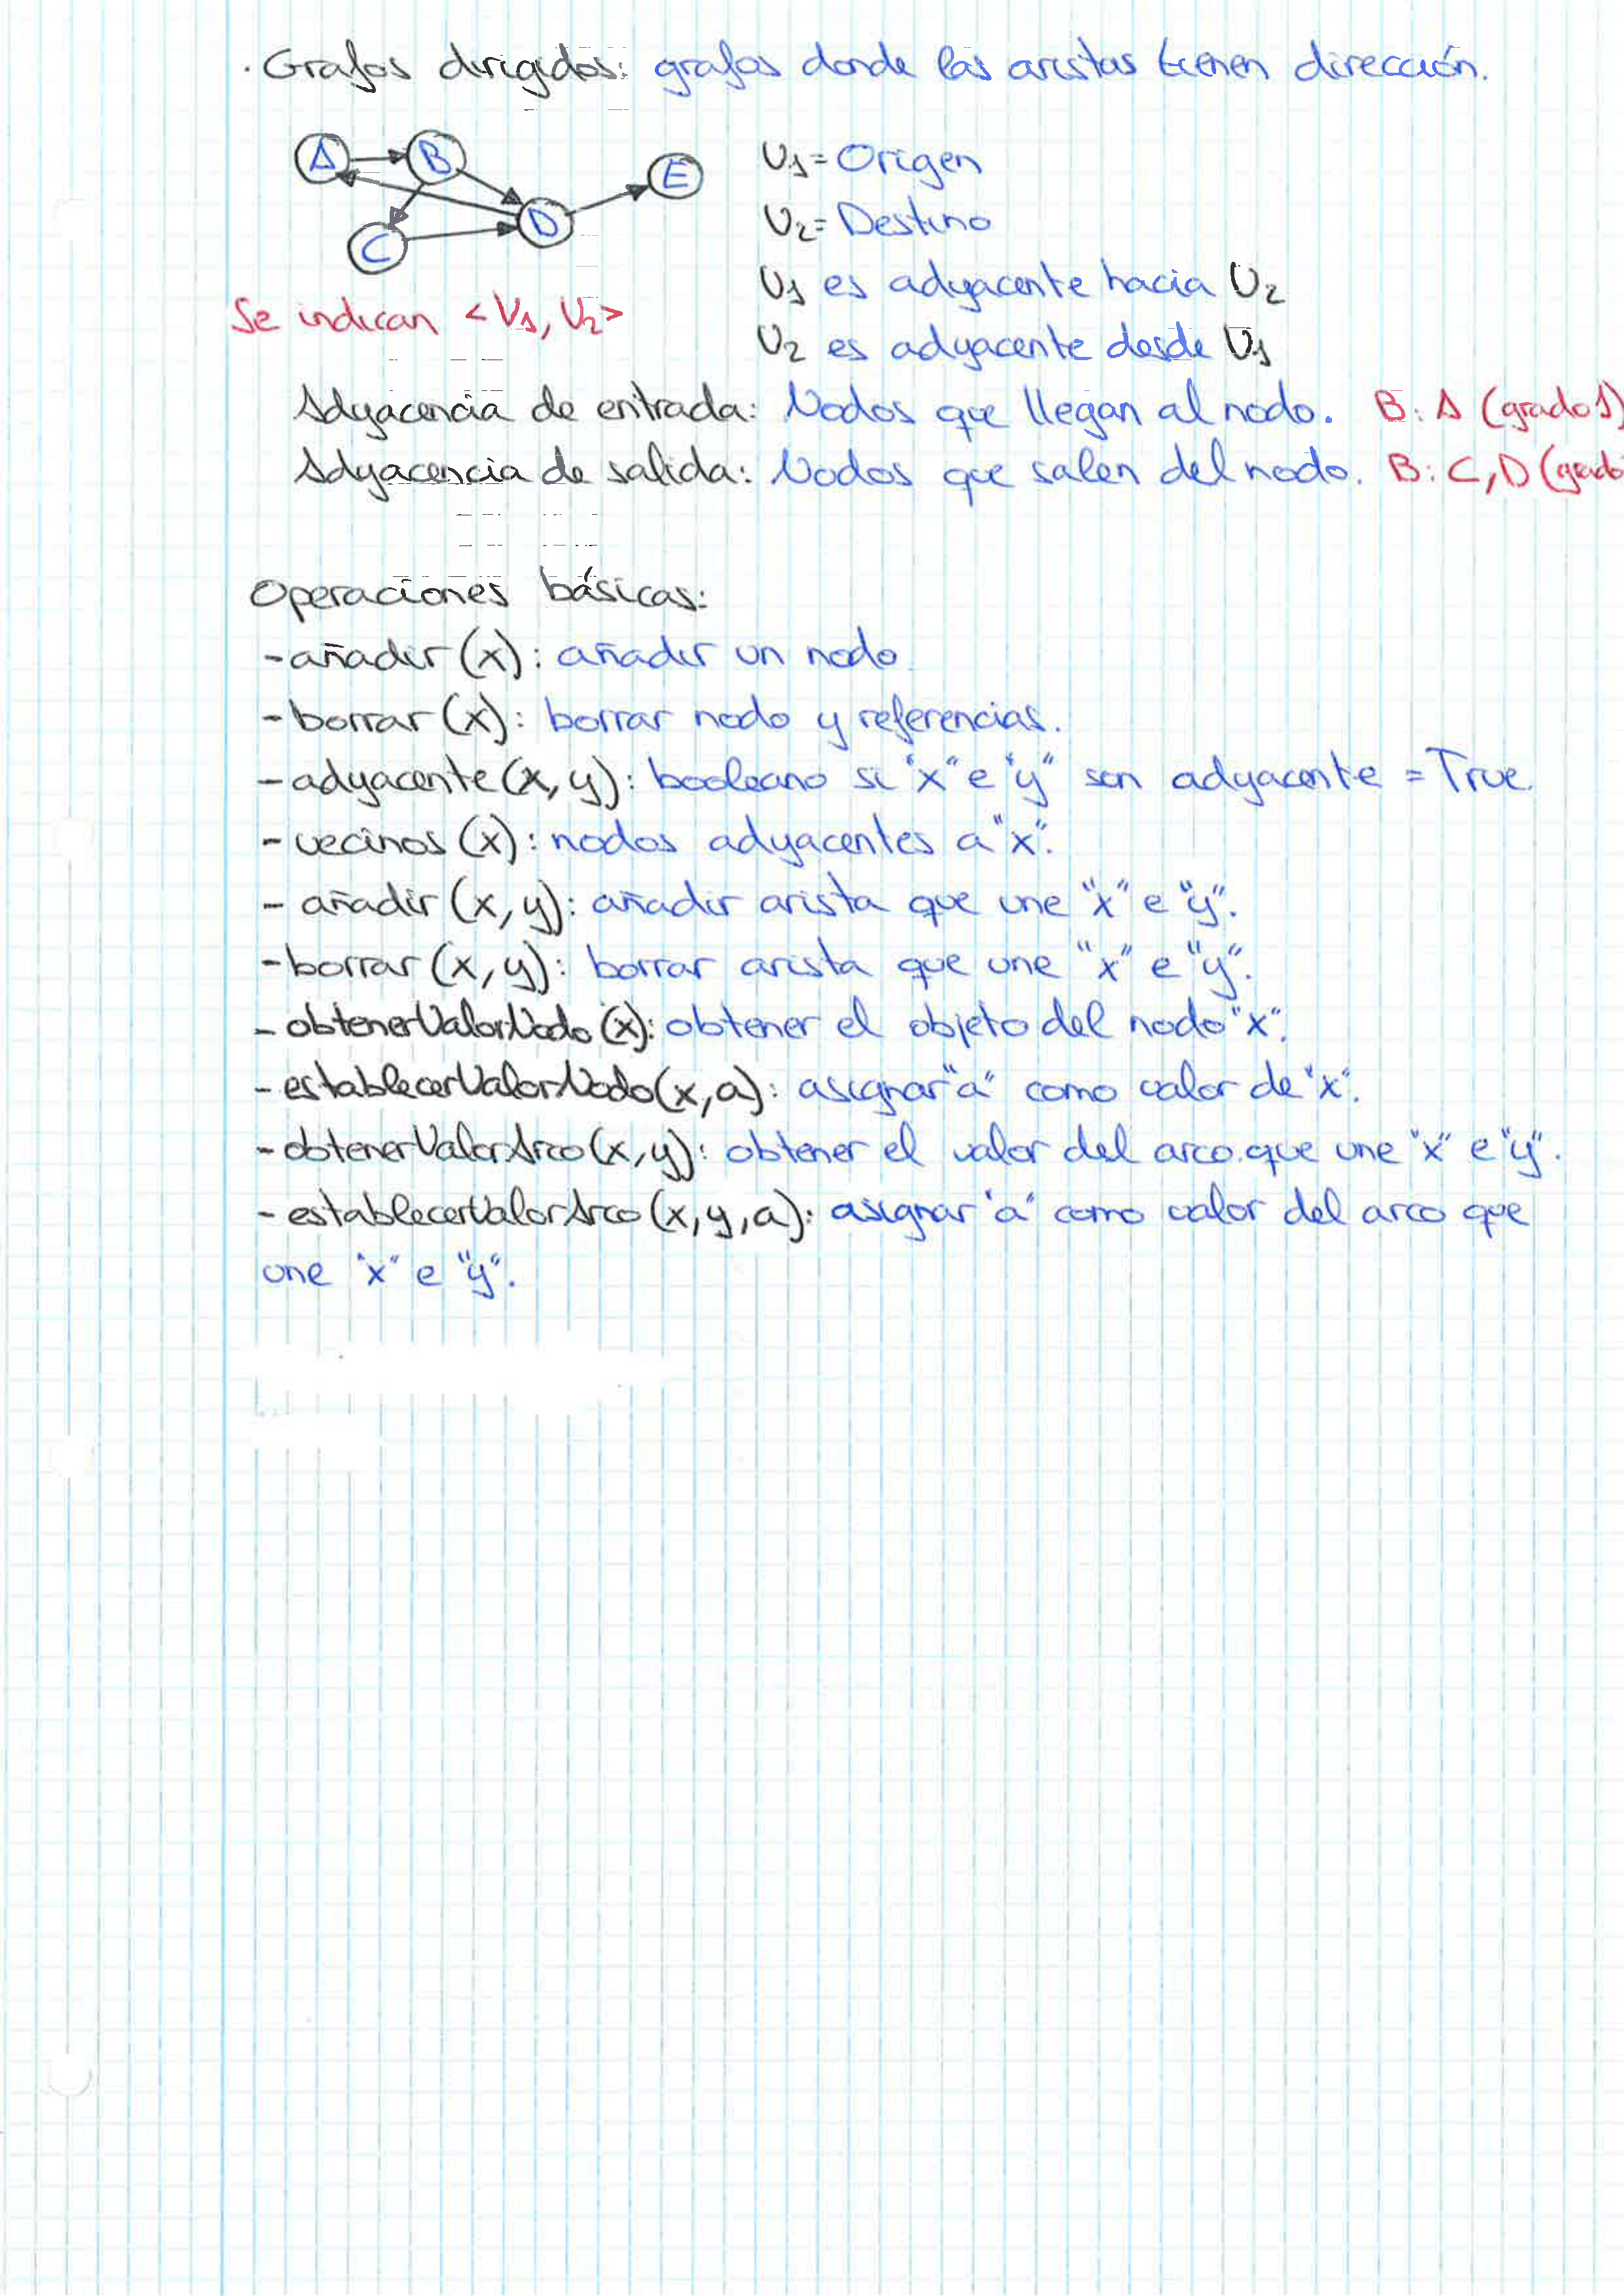 · Grafos dirigidos: grafos donde las aristas tienen dirección.
A B E
C D
V1 = Origen
V2 = Destino
V1 es adyacente hacia V2
Se indican <V1, V2>
V2 es adyacente desde V1
Adyacencia de entrada: Nodos que llegan al nodo. B: A (grado 1)
Adyacencia de salida: Nodos que salen del nodo. B: C, D (grado
Operaciones básicas:
- añadir (x): añadir un nodo.
- borrar (x): borrar nodo y referencias.
- adyacente (x, y): booleano si "x" e "y" son adyacente = True.
- vecinos (x): nodos adyacentes a "x".
- añadir (x, y): añadir arista que une "x" e "y".
- borrar (x, y): borrar arista que une "x" e "y".
- obtenerValorNodo (x): obtener el objeto del nodo "x".
- establecerValorNodo (x, a): asignar "a" como valor de "x".
- obtenerValorArco (x, y): obtener el valor del arco que une "x" e "y".
- establecerValorArco (x, y, a): asignar "a" como valor del arco que
une "x" e "y".